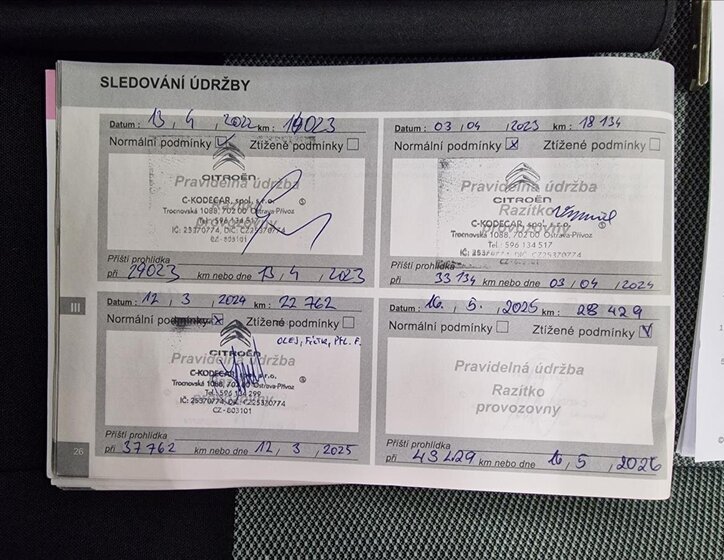 SLEDOVÁNÍ ÚDRŽBY
Datum : 13 , 4 , 2022 km : 14023
Normální podmínky Ztížené podmínky
Pravidelná údržba
CITROËN
C-KODECAR, spol. s r.o.
Trocnovská 1088, 702 00 Ostrava-Přívoz
Tel.: 596 134 517
provozovny
IČ: 25370774, DIČ: CZ25370774
CZ-803101
Příští prohlídka
při 29023 km nebo dne 13 , 4 , 2023
Datum : 03 , 04 , 2023 km : 18 134
Normální podmínky x Ztížené podmínky
Pravidelná údržba
CITROËN
Razítko
C-KODECAR, spol. s r.o.
Trocnovská 1088, 702 00 Ostrava-Přívoz
provozovny
Tel.: 596 134 517
IČ: 25370774, DIČ: CZ25370774
Příští prohlídka
při 33 134 km nebo dne 03 , 04 , 2024
III
Datum : 12 , 3 , 2024 km : 22 762
Normální podmínky x Ztížené podmínky
OLEJ, FILTR,
Pravidelná údržba
CITROËN
C-KODECAR, spol. s r.o.
Trocnovská 1088, 702 00 Ostrava-Přívoz
IČ: 25370774, DIČ: CZ25370774
CZ-803101
Příští prohlídka
při 37 762 km nebo dne 12 , 3 , 2025
Datum : 16. , 5. , 2025 km : 28 429
Normální podmínky Ztížené podmínky
Pravidelná údržba
Razítko
provozovny
Příští prohlídka
při 43429 km nebo dne 16 , 5 , 2026
26